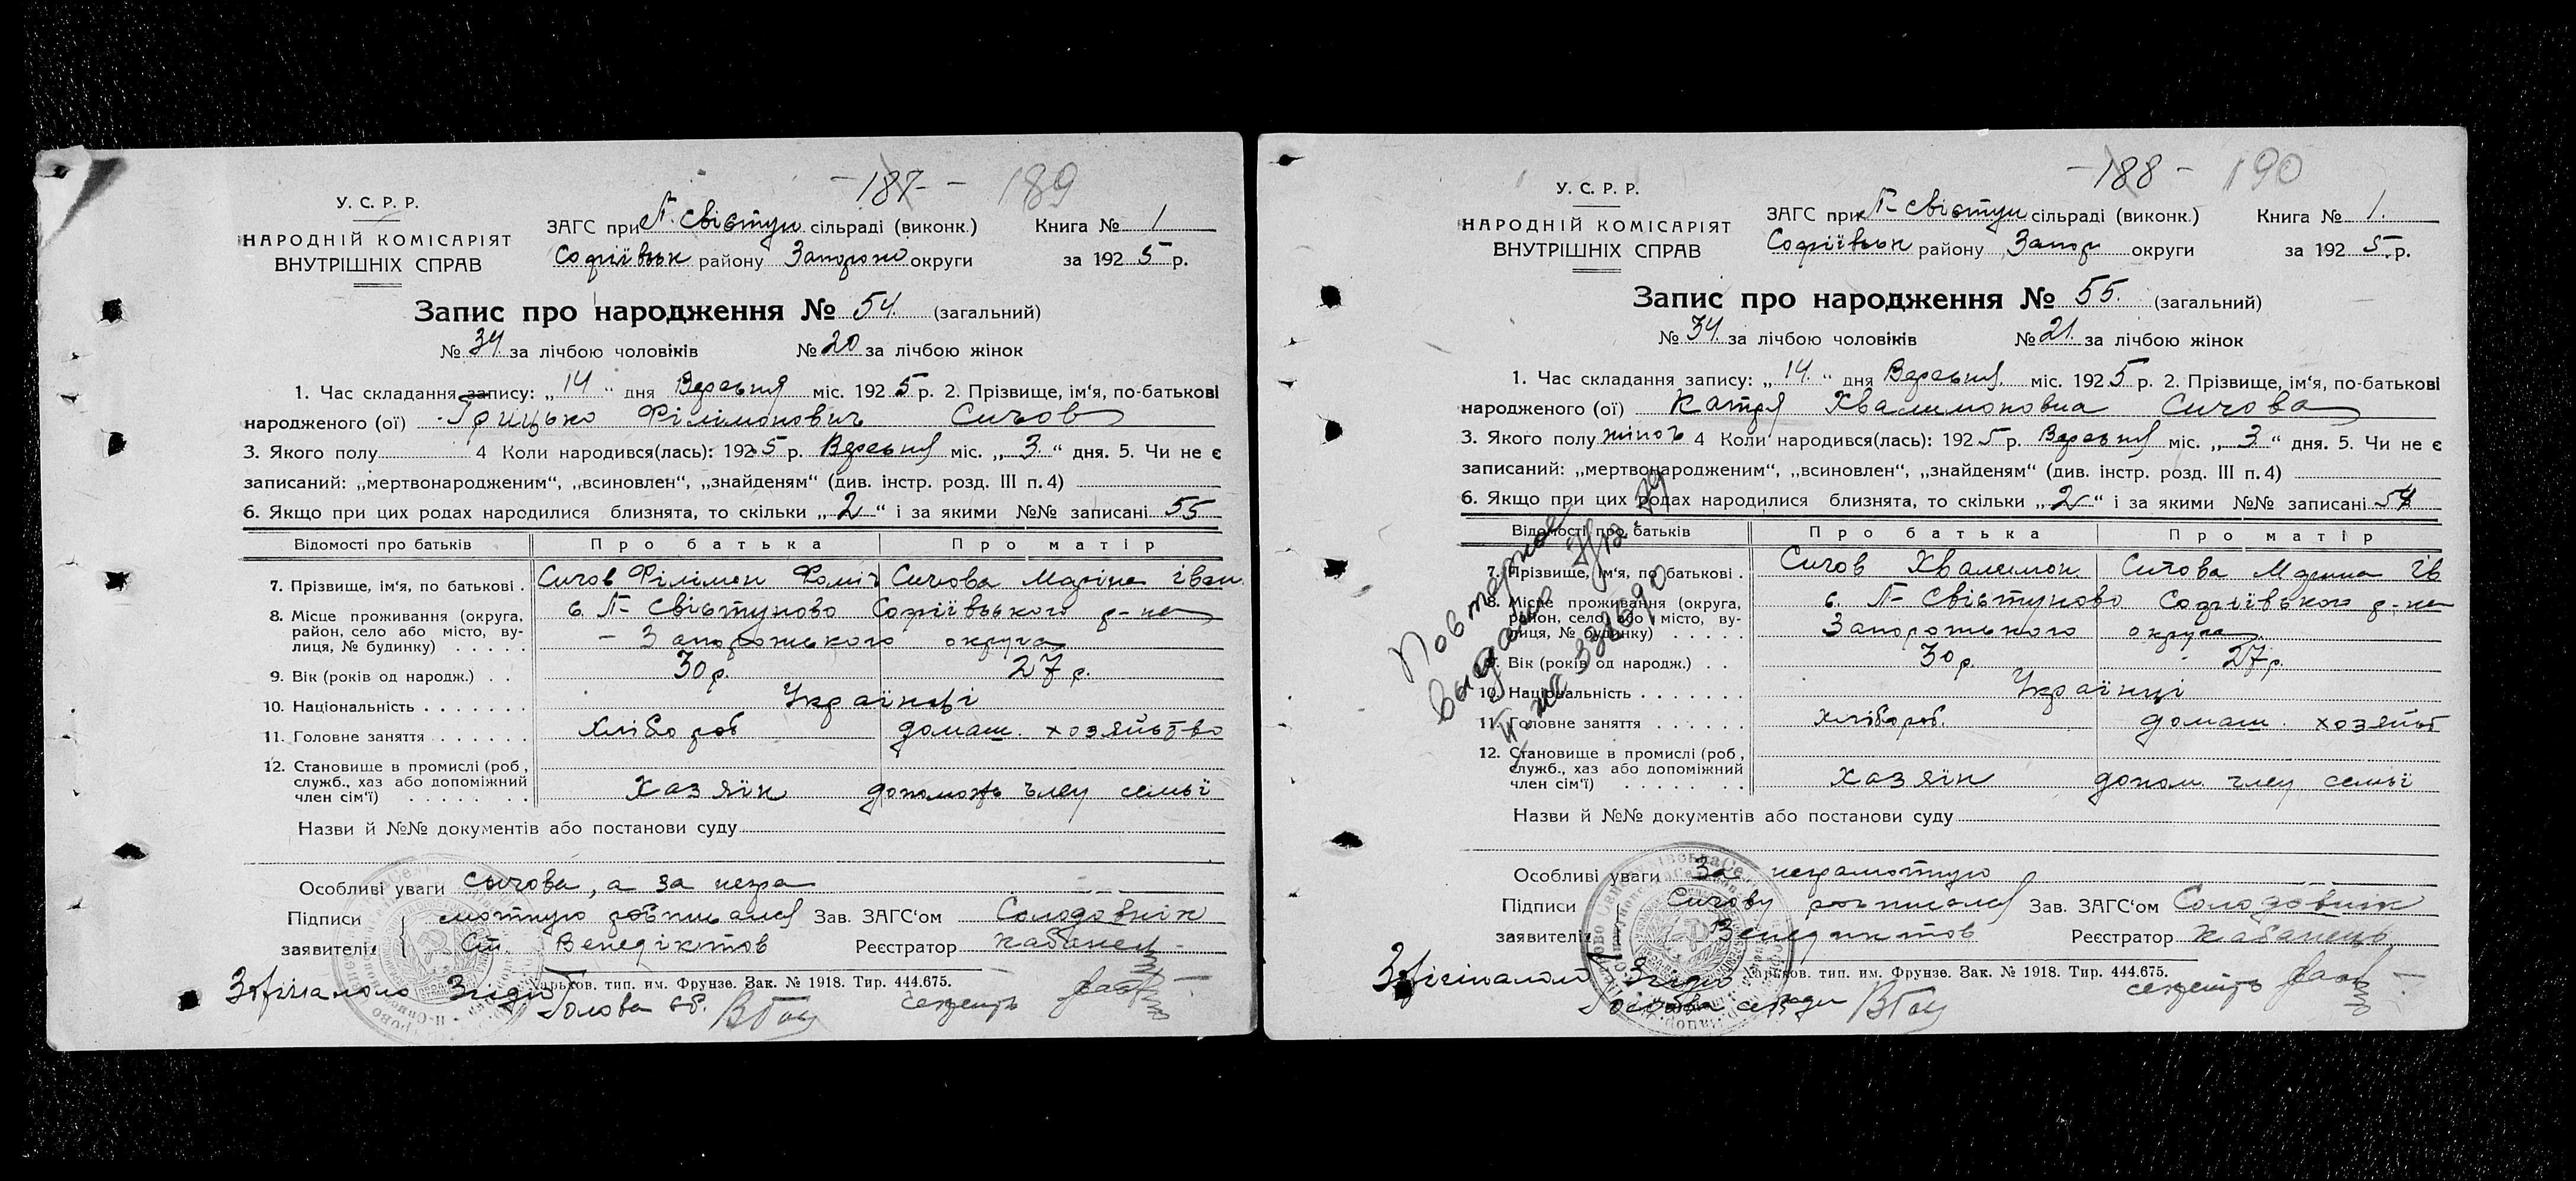 -187- 189
У. С. Р. Р.
НАРОДНІЙ КОМІСАРІЯТ
ВНУТРІШНІХ СПРАВ
ЗАГС при П. Свістун сільраді (виконк.) Книга № 1
Софіївськ району Запорожо округи за 1925 р.
Запис про народження № 54. (загальний)
№ 34 за лічбою чоловіків № 20 за лічбою жінок
1. Час складання запису: „14“ дня Вересня міс. 1925 р. 2. Прізвище, ім‘я, по-батькові
народженого (ої) Грицько Філімонович Сичов
3. Якого полу 4 Коли народився(лась): 1925 р. Вересня міс. „3.“ дня. 5. Чи не є
записаний: „мертвонародженим“, „всиновлен“, „знайденям“ (див. інстр. розд. III п. 4)
6. Якщо при цих родах народилися близнята, то скільки „2“ і за якими №№ записані 55
Відомості про батьків Про батька Про матір
7. Прізвище, ім‘я, по батькові . Сичов Філімон Фоміч Сичова Маріна Іван.
8. Місце проживання (округа, район, село або місто, вулиця, № будинку) с. П- Свістуново Софіївського р-на
- Запорожського округа
9. Вік (років од народж.) . . 30 р. 27 р.
10. Національність Українці
11. Головне заняття Хлібороб домаш. хозяйство
12. Становище в промислі (роб,
служб., хаз або допоміжний
член сім‘ї) Хазяїн допоможь члену семьї
Назви й №№ документів або постанови суду
Особливі уваги Сычова, а за негра
Підписи мотную росписался Зав. ЗАГС‘ом Солодовнік
заявителів Ст. Венедіктов Реєстратор Кабанець
Харьков. тип. им. Фрунзе. Зак. № 1918. Тир. 444.675.
З орігіналом Згідно
Голова с.р. секреть
-188- 190
У. С. Р. Р.
НАРОДНІЙ КОМІСАРІЯТ
ВНУТРІШНІХ СПРАВ
ЗАГС при П- Свістун сільраді (виконк.) Книга № 1.
Софіївськ району Запор округи за 1925 р.
Запис про народження № 55. (загальний)
№ 34. за лічбою чоловіків № 21. за лічбою жінок
1. Час складання запису: „14.“ дня Вересня міс. 1925 р. 2. Прізвище, ім‘я, по-батькові
народженого (ої) Катря Хвалимоновна Сичова
3. Якого полу жіноч 4 Коли народився(лась): 1925 р. Вересня міс. „3“ дня. 5. Чи не є
записаний: „мертвонародженим“, „всиновлен“, „знайденям“ (див. інстр. розд. III п. 4)
6. Якщо при цих родах народилися близнята, то скільки „2“ і за якими №№ записані 54
Відомості про батьків Про батька Про матір
7. Прізвище, ім‘я, по батькові . Сичов Хвалимон Сичова Марина Ів
8. Місце проживання (округа, район, село або місто, вулиця, № будинку) с. П- Свістуново Софіївського р-на
Запорожського округа
9. Вік (років од народж.) . . 30 р. 27 р.
10. Національність Українці
11. Головне заняття хлібороб. домаш. хозяйст
12. Становище в промислі (роб,
служб., хаз або допоміжний
член сім‘ї) хазяїн допом. члену семьї
Назви й №№ документів або постанови суду
Особливі уваги За неграмотную
Підписи Сичову росписался Зав. ЗАГС‘ом Солодовнік
заявителів Венедиктов Реєстратор Кабанець
Харьков. тип. им. Фрунзе. Зак. № 1918. Тир. 444.675.
З орігіналом Згідно
Голова сельради секреть
Повторное
выдано